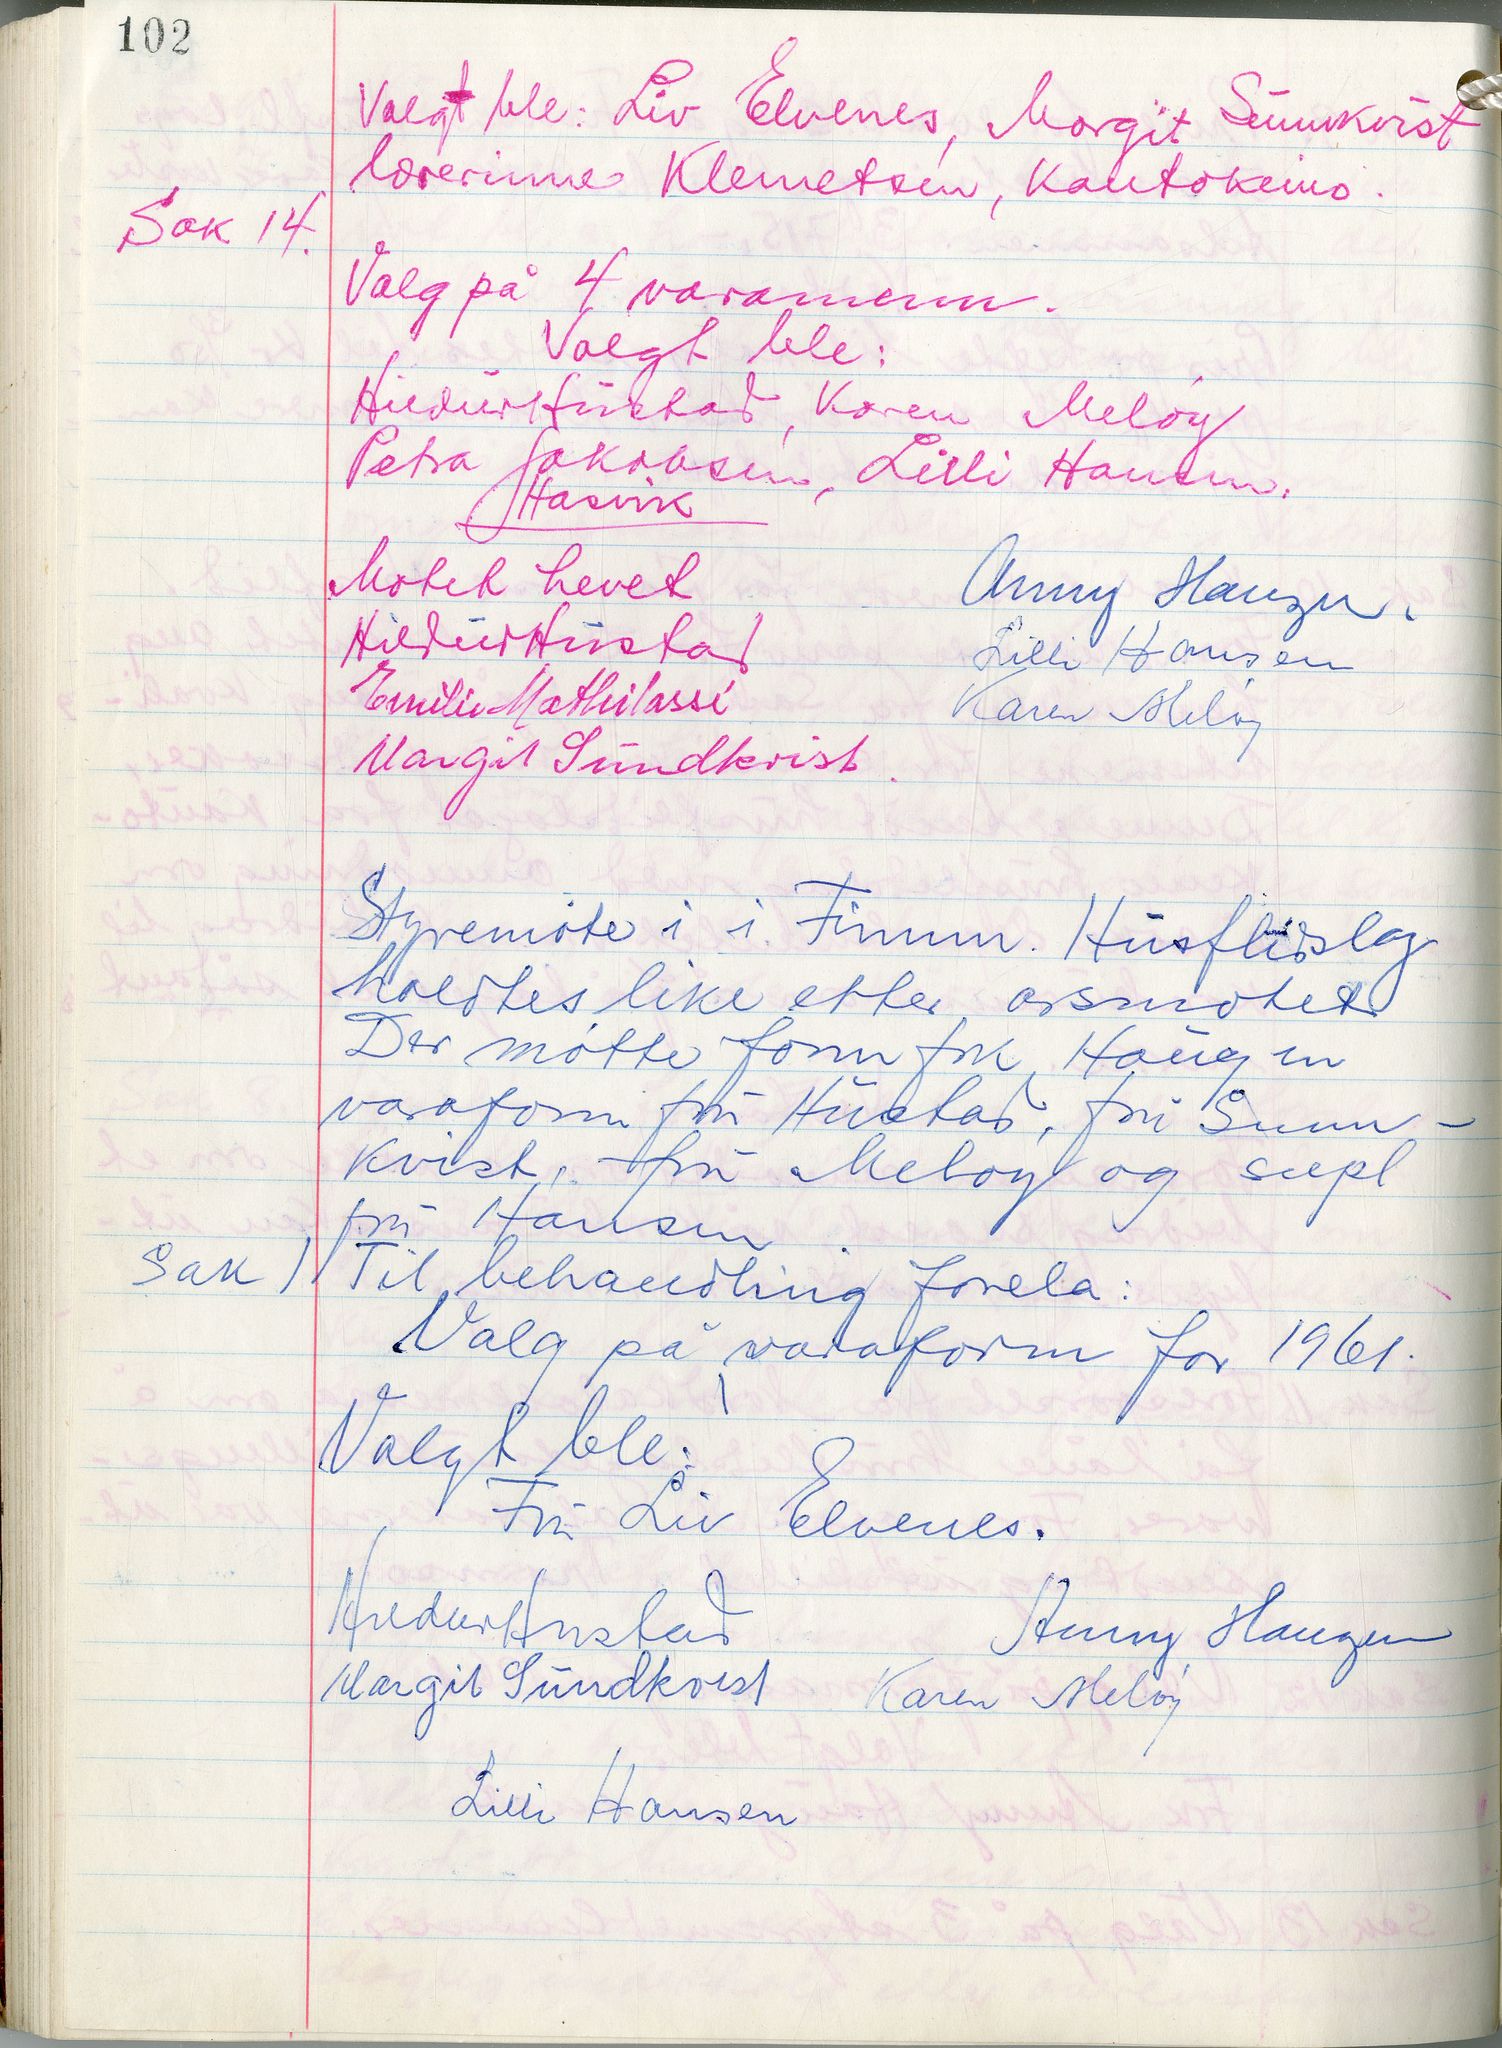 102
Valgt ble: Liv Elvenes, Margit Sünnkvist
lærerinne Klemetsen, Kautokeino.
Sak 14.
Valg på 4 varamenn.
Valgt ble:
Hildur Hüstad, Karen Meløy
Petra Jakobsen, Lilli Hansen.
Hasvik
Møtet hevet
Hildur Hüstad
Emilie Mathilassi
Margit Sündkvist.
Anny Haugen.
Lilli Hansen
Karen Meløy
Styremøte i i. Finnm. Hüsflidslag
holdtes like etter årsmøtet
Der møtte form frk. Haügen
varaform frü Hüstad, frü Sunn-
kvist, frü Meløy og supl
frü Hansen
Sak 1/ Til behandling forela:
Valg på varaform for 1961.
Valgt ble:
Frü Liv Elvenes.
Hildur Hustad
Anny Haugen
Margit Sündkvist
Karen Meløy
Lilli Hansen